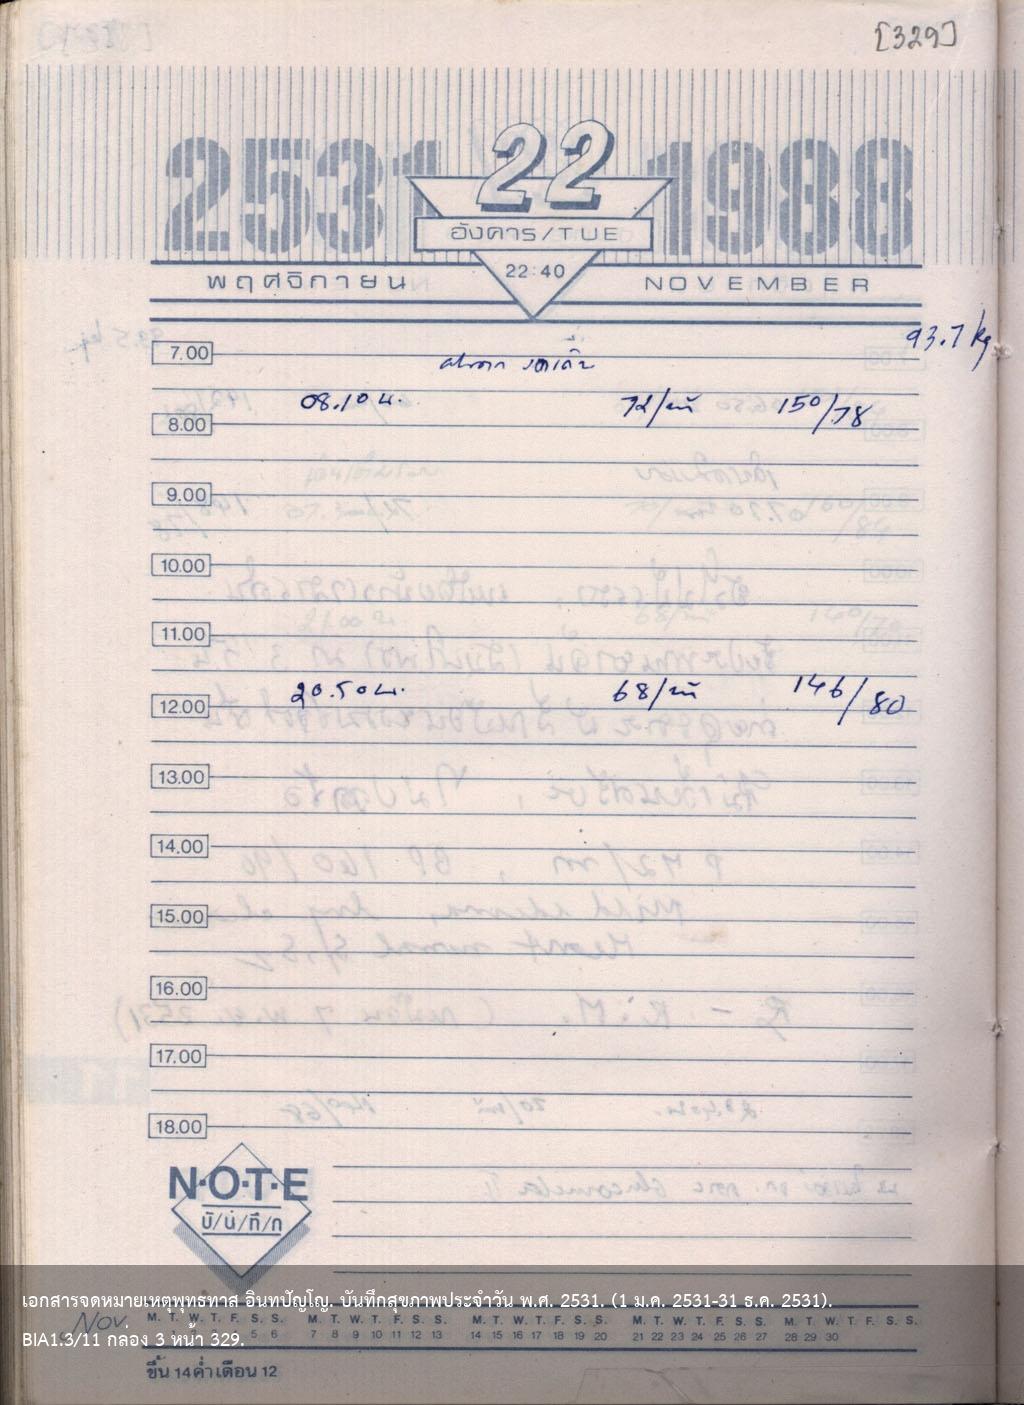 [329]
2531 22 1988
อังคาร/TUE
22:40
พฤศจิกายน NOVEMBER
93.7 kg
7.00
08.10 น. 72/นาที 150/78
8.00
9.00
10.00
11.00
20.50 น. 68/นาที 146/80
12.00
13.00
14.00
15.00
16.00
17.00
18.00
N·O·T·E
บั/น/ทึ/ก
เอกสารจดหมายเหตุพุทธทาส อินทปัญโญ. บันทึกสุขภาพประจำวัน พ.ศ. 2531. (1 ม.ค. 2531-31 ธ.ค. 2531).
Nov. M. T. W. T. F. S. S. M. T. W. T. F. S. S. M. T. W. T. F. S. S. M. T. W. T. F. S. S. M. T. W. T. F. S. S.
5 6 7 8 9 10 11 12 13 14 15 16 17 18 19 20 21 22 23 24 25 26 27 28 29 30
BIA1.3/11 กล่อง 3 หน้า 329.
ขึ้น 14 ค่ำ เดือน 12